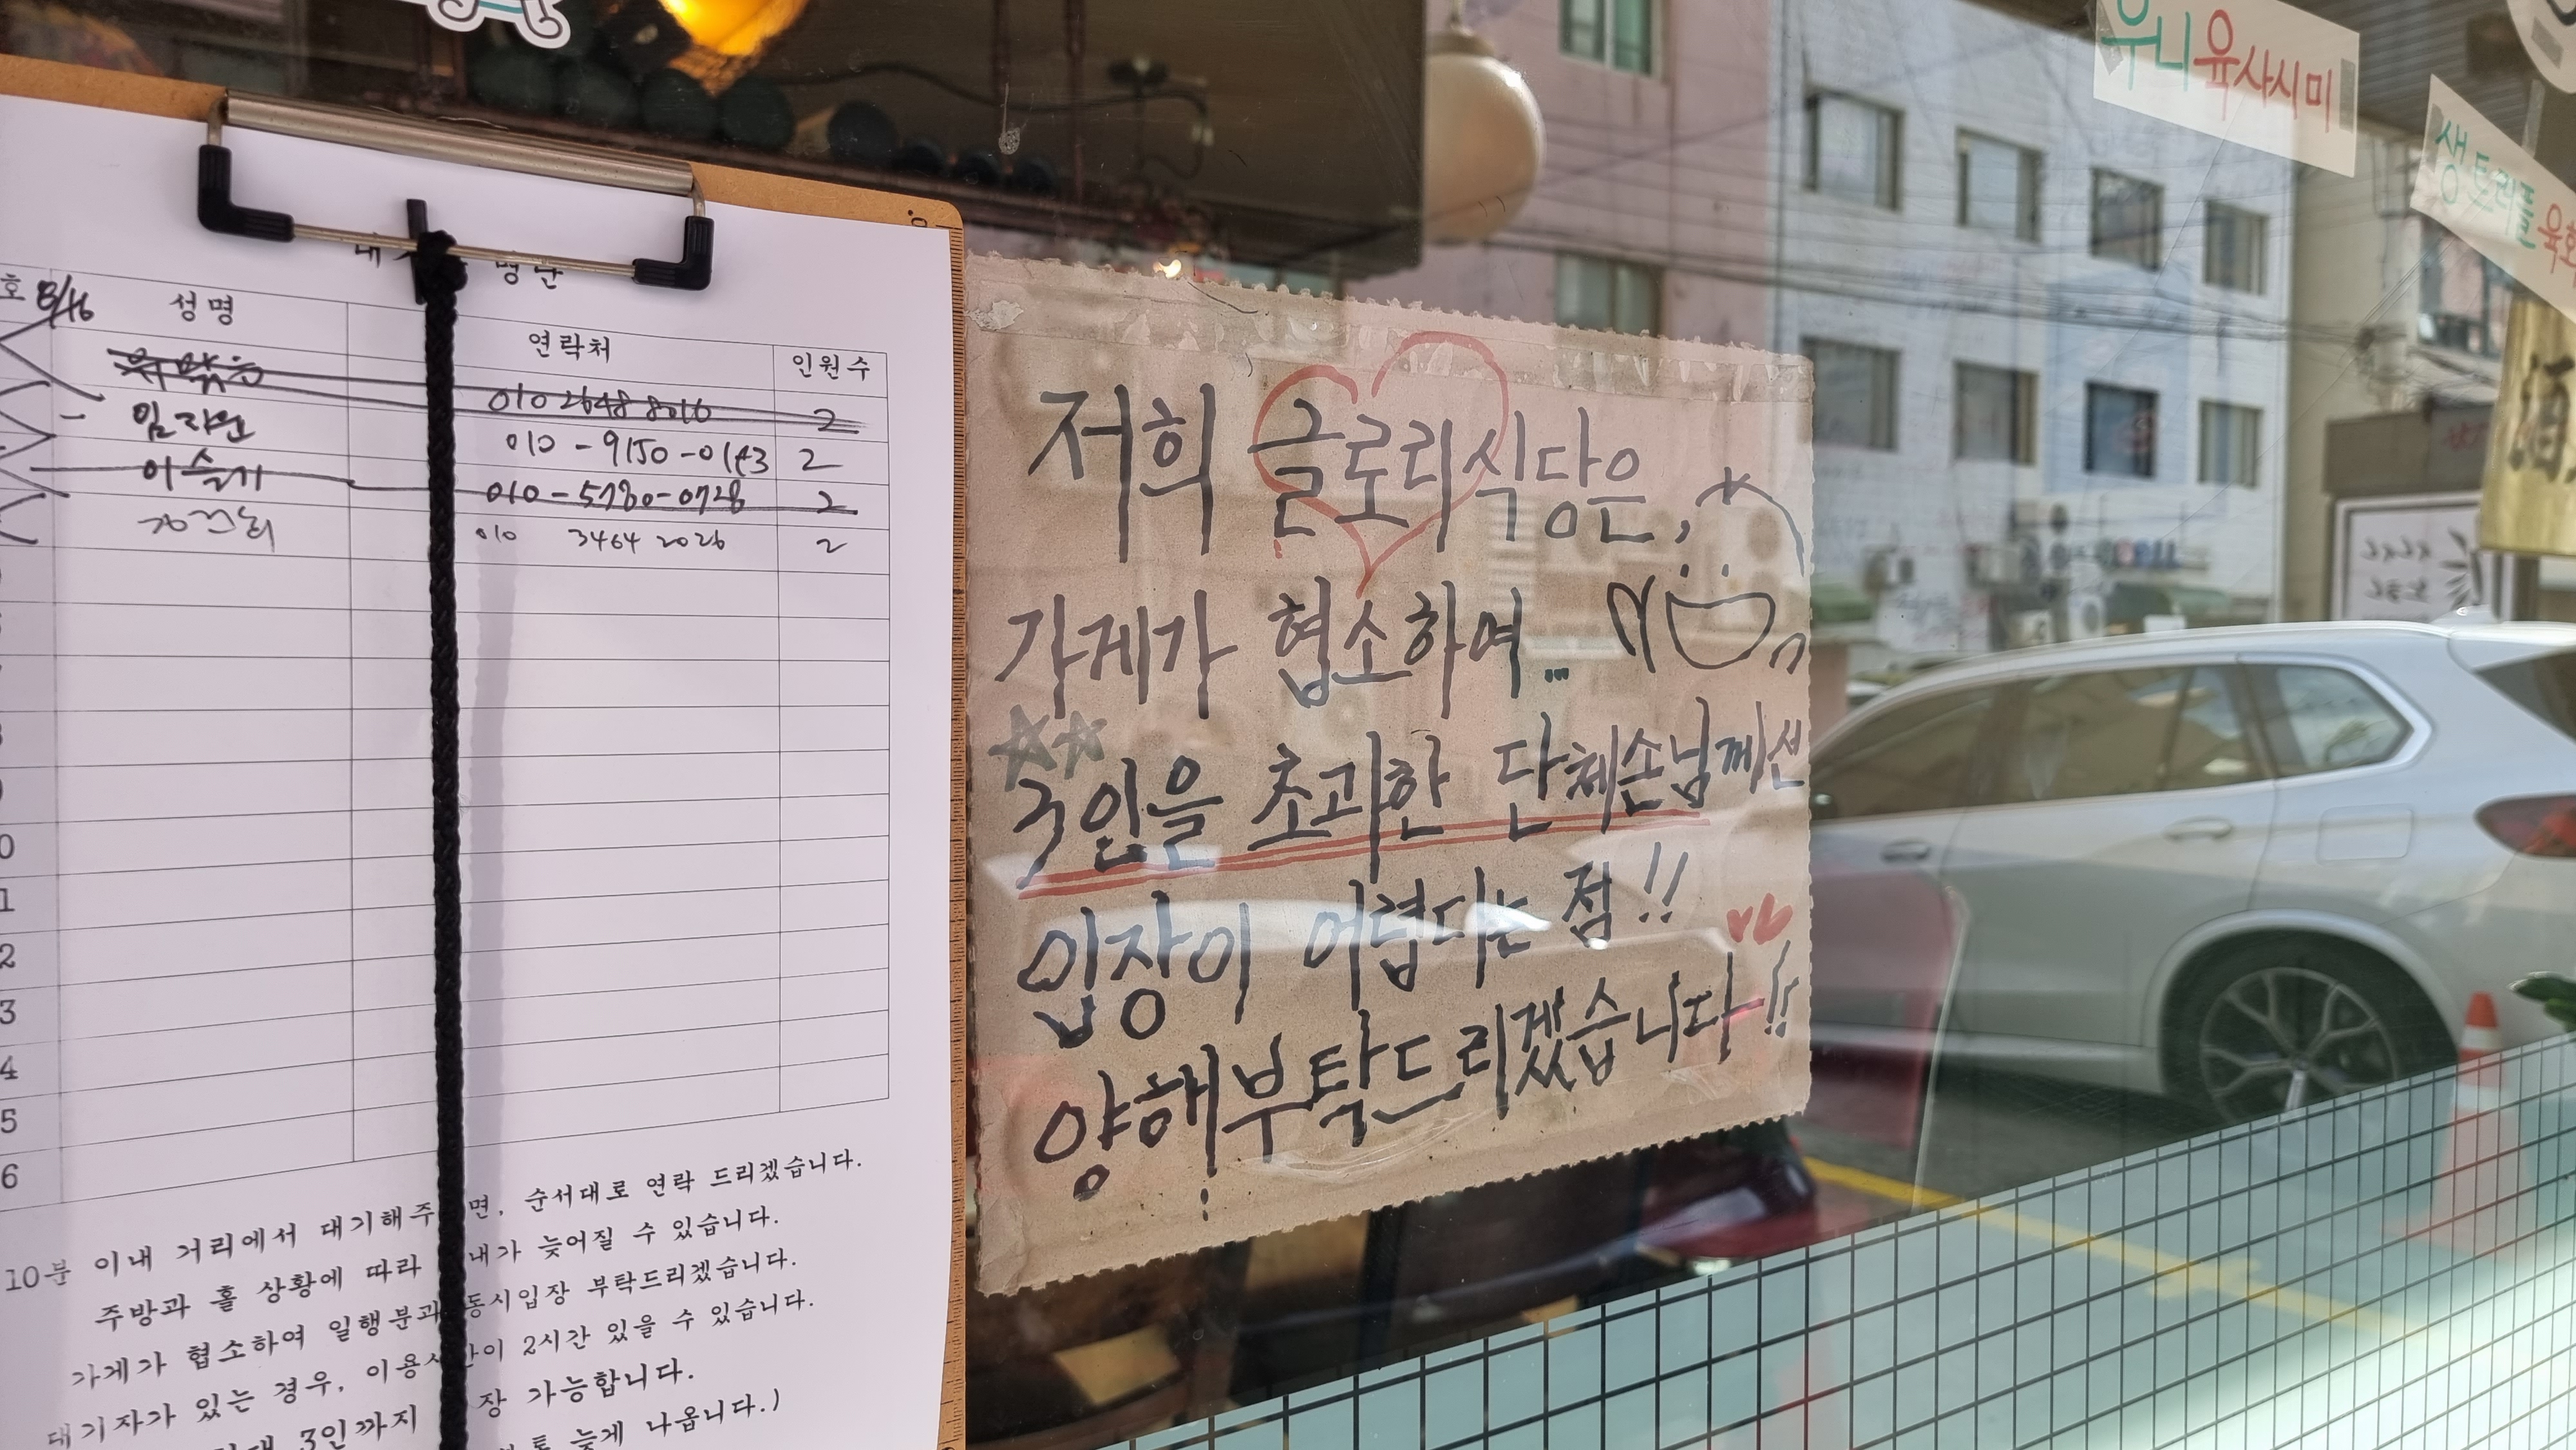 호 8/16 성명 연락처 인원수
010 2648 8016 2
임지원 010-9150-01 2
이슬기 010-5780-0728 2
010 3464 2026 2
0
1
2
3
4
5
6
10분 이내 거리에서 대기해주 면, 순서대로 연락 드리겠습니다.
주방과 홀 상황에 따라 내가 늦어질 수 있습니다.
가게가 협소하여 일행분과 동시입장 부탁드리겠습니다.
대기자가 있는 경우, 이용시간이 2시간 있을 수 있습니다.
3인까지 장 가능합니다.
늦게 나옵니다.)
저희 글로리식당은,
가게가 협소하여...
3인을 초과한 단체손님께선
입장이 어렵다는 점!!
양해부탁드리겠습니다!!
우니육사시미
생트러플육회
酒